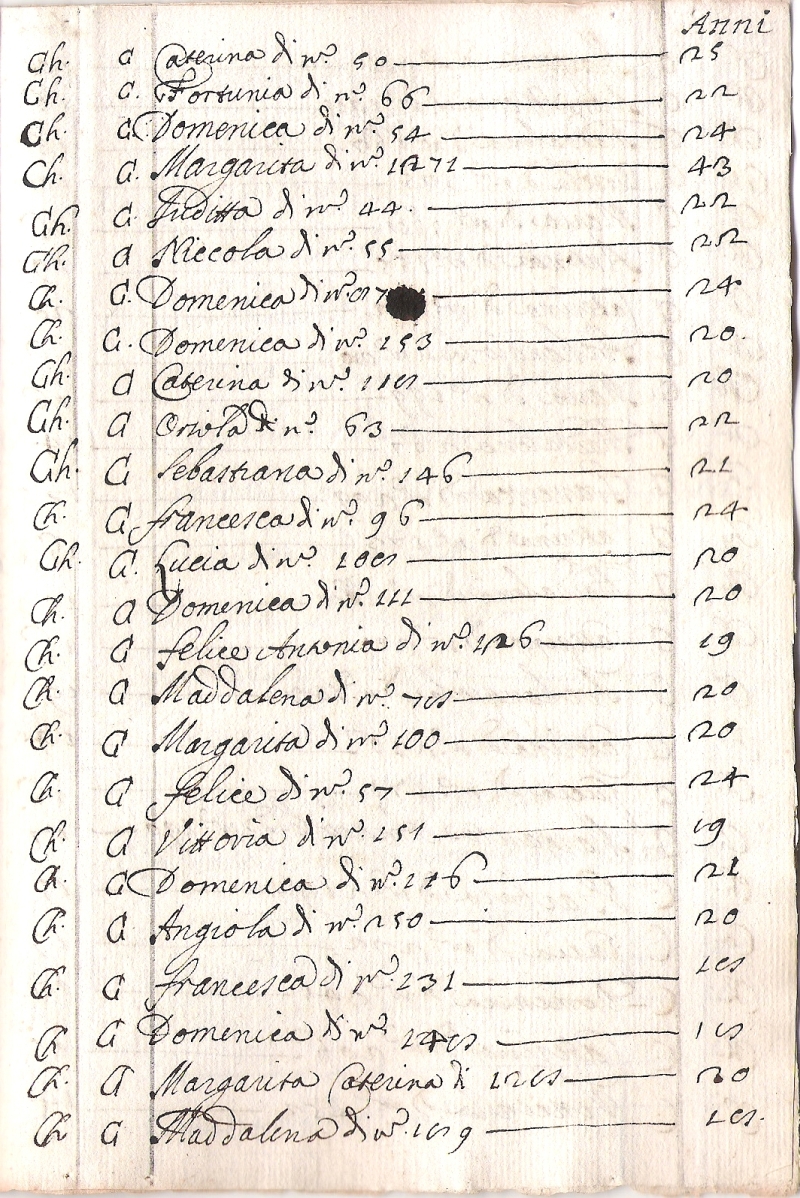 Anni
Ch. C Caterina di nº. 50 25
Ch. C. Fortunia di nº. 66 22
Ch. C Domenica di nº. 54 24
Ch. C. Margarita di nº. 1271 43
Ch. C. Juditta di nº. 44. 22
Ch. C Niccola di nº. 55 22
Ch. C. Domenica di nº. 87 24
Ch. C. Domenica di nº. 153 20.
Ch. C Caterina di nº. 118 20
Ch. C Orsola di nº. 63 22
Ch. C Sebastiana di nº. 146 21
Ch. C Francesca di nº. 96 24
Ch. C. Lucia di nº. 108 20
Ch. C Domenica di nº. 111 20
Ch. C Felice Antonia di nº. 126 19
Ch. C Maddalena di nº. 78 20
Ch. C Margarita di nº. 100 20
Ch. C Felice di nº. 57 24
Ch. C Vittoria di nº. 151 19
Ch. C Domenica di nº. 116 21
Ch. C Angiola di nº. 150 20
Ch. C Francesca di nº. 131 18
Ch C Domenica di nº. 148 18
Ch. C Margarita Caterina di 128 20
Ch C Maddalena di nº. 189 18.